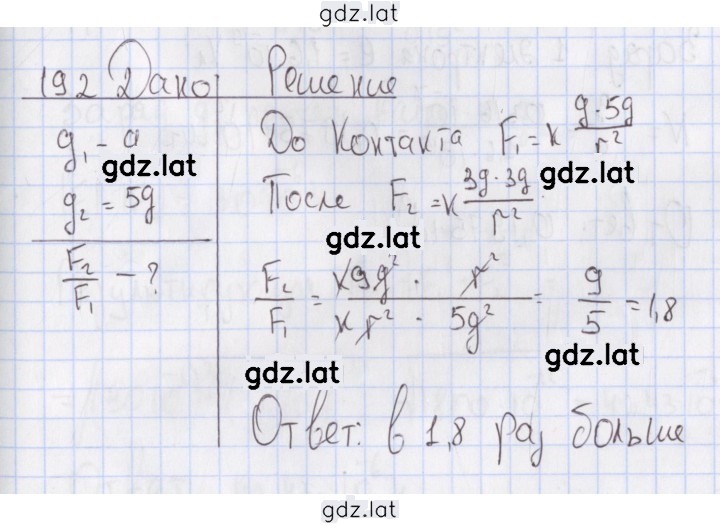 gdz.lat
192 Дано
g₁ - a
gdz.lat
g₂ = 5g
F₂/F₁ - ?
Решение
До контакта F₁ = к g·5g/r²
gdz.lat
После F₂ = к 3g·3g/r²
gdz.lat
F₂/F₁ = к9g² · r²/кr² · 5g² = 9/5 = 1,8
gdz.lat
gdz.lat
Ответ: в 1,8 раз больше
gdz.lat